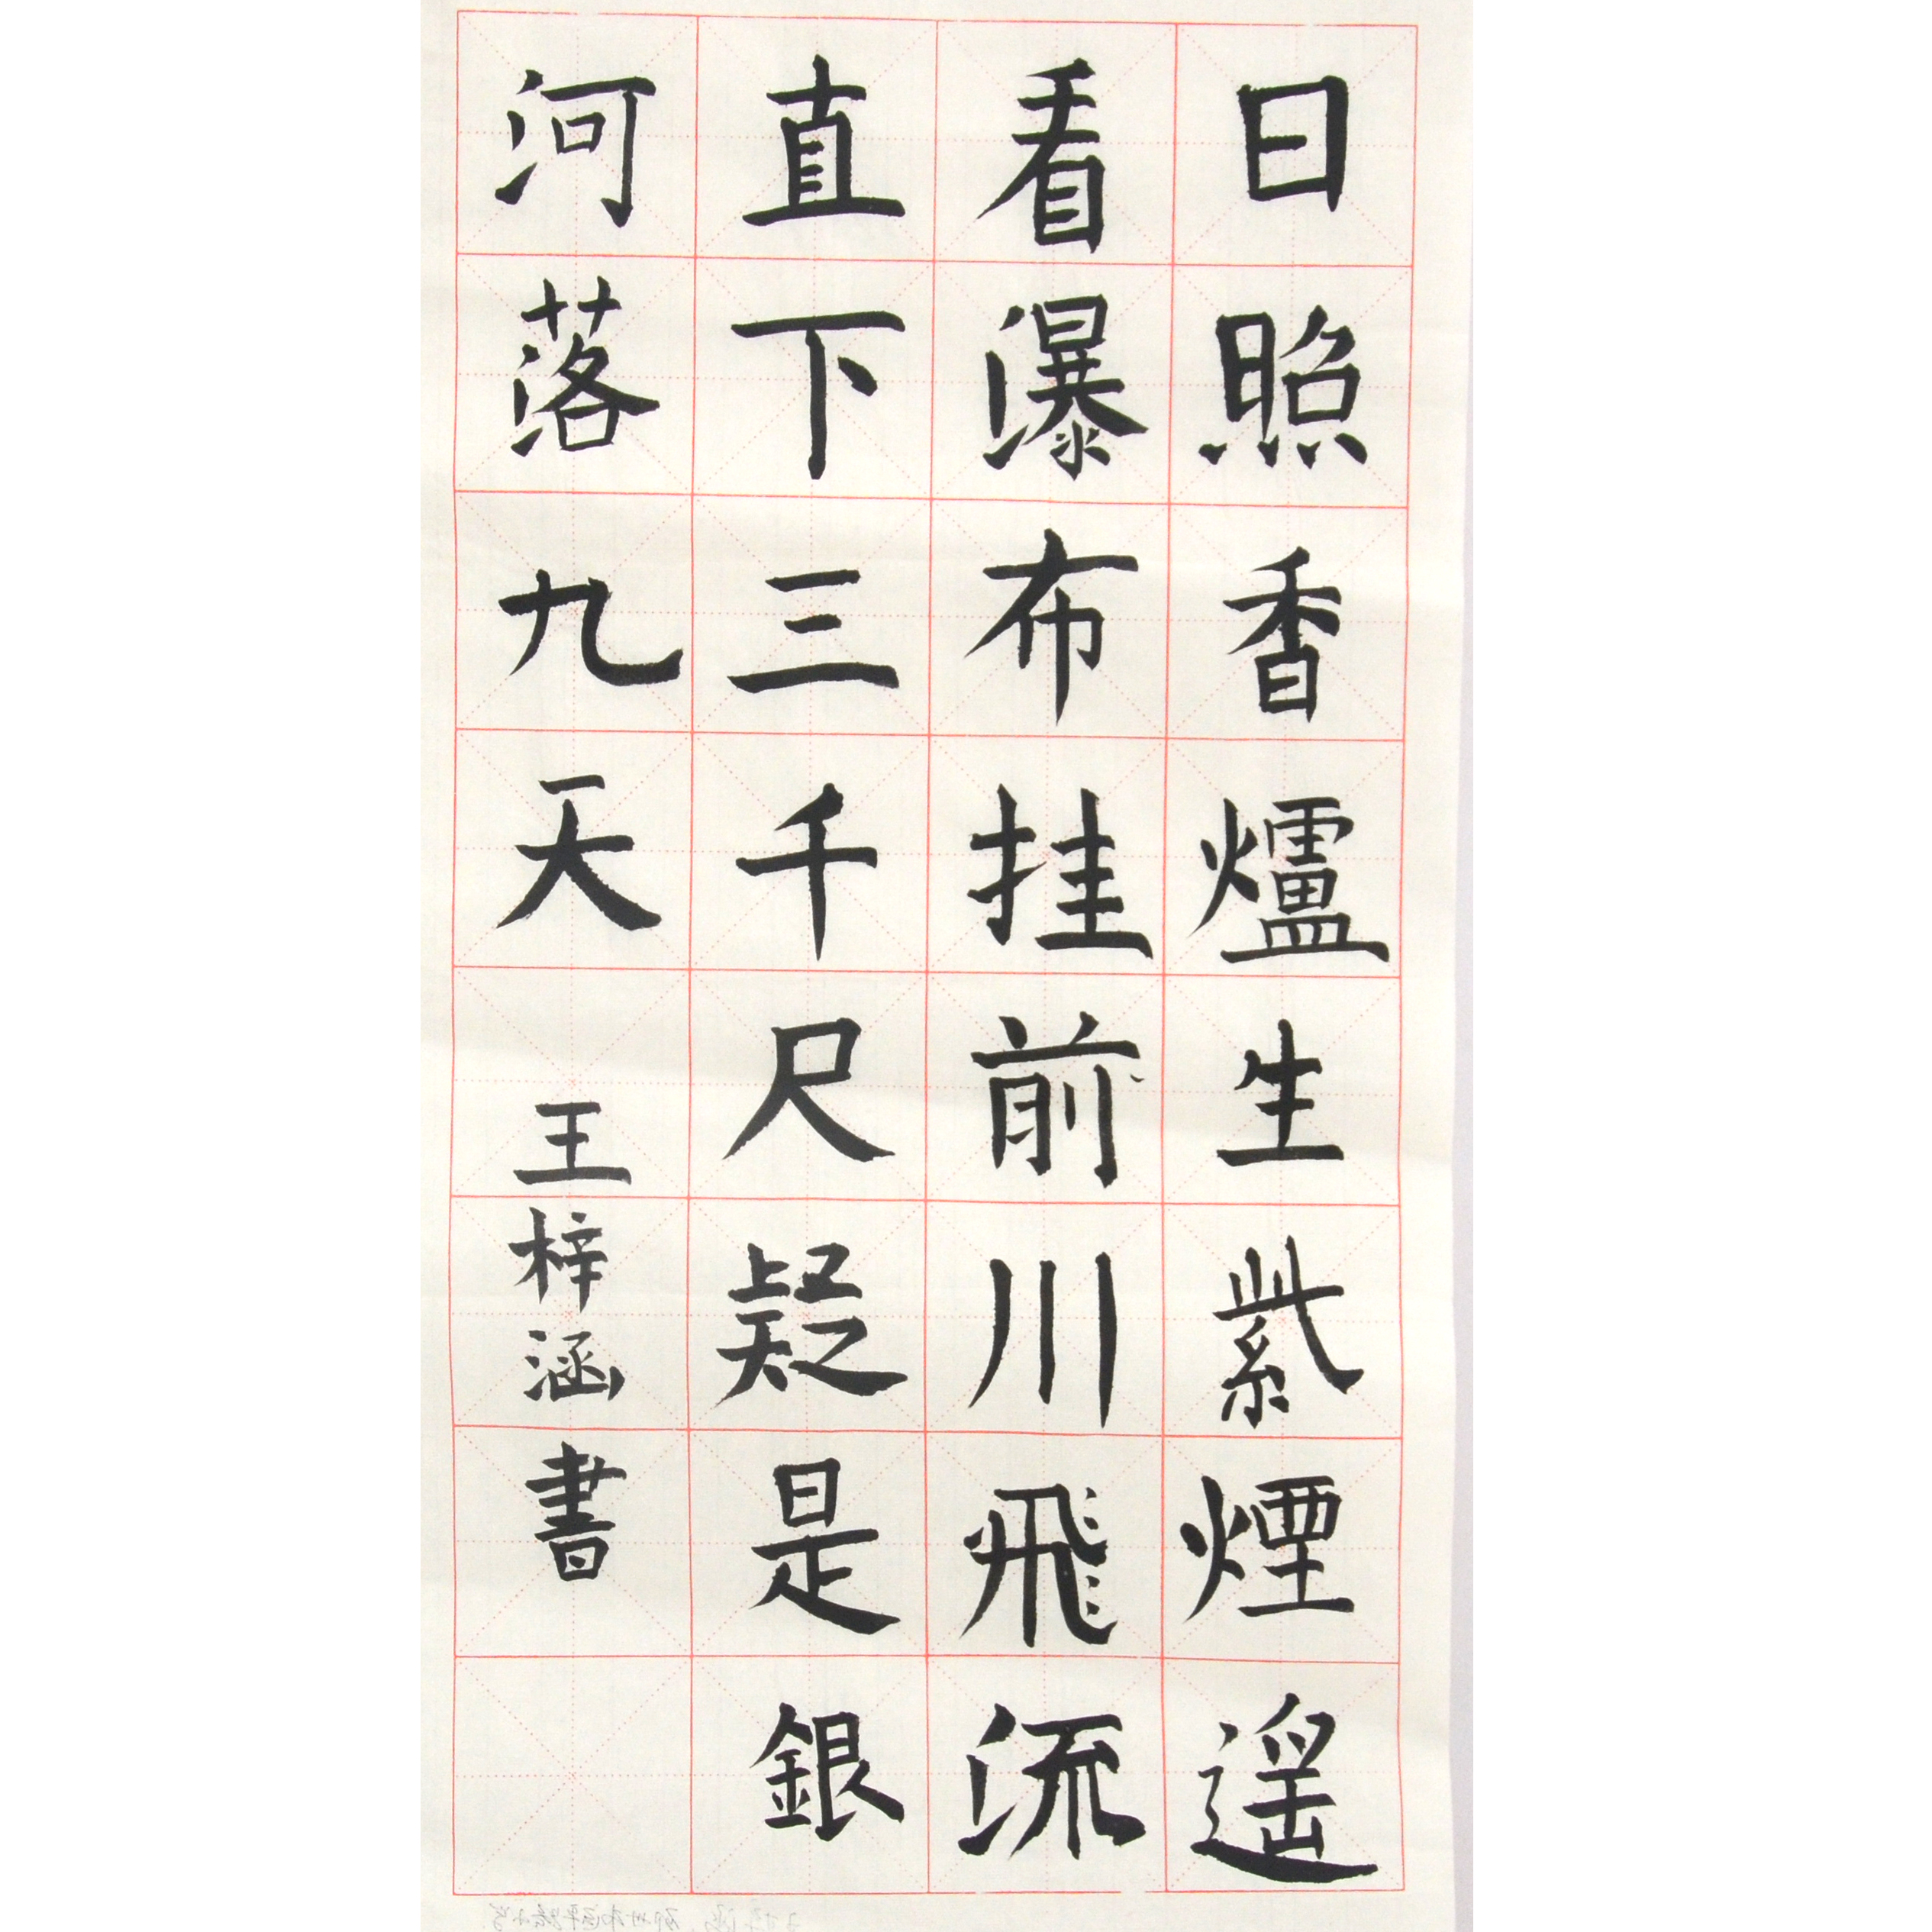 日照香爐生紫煙遥
看瀑布挂前川飛流
直下三千尺疑是銀
河落九天王梓涵書